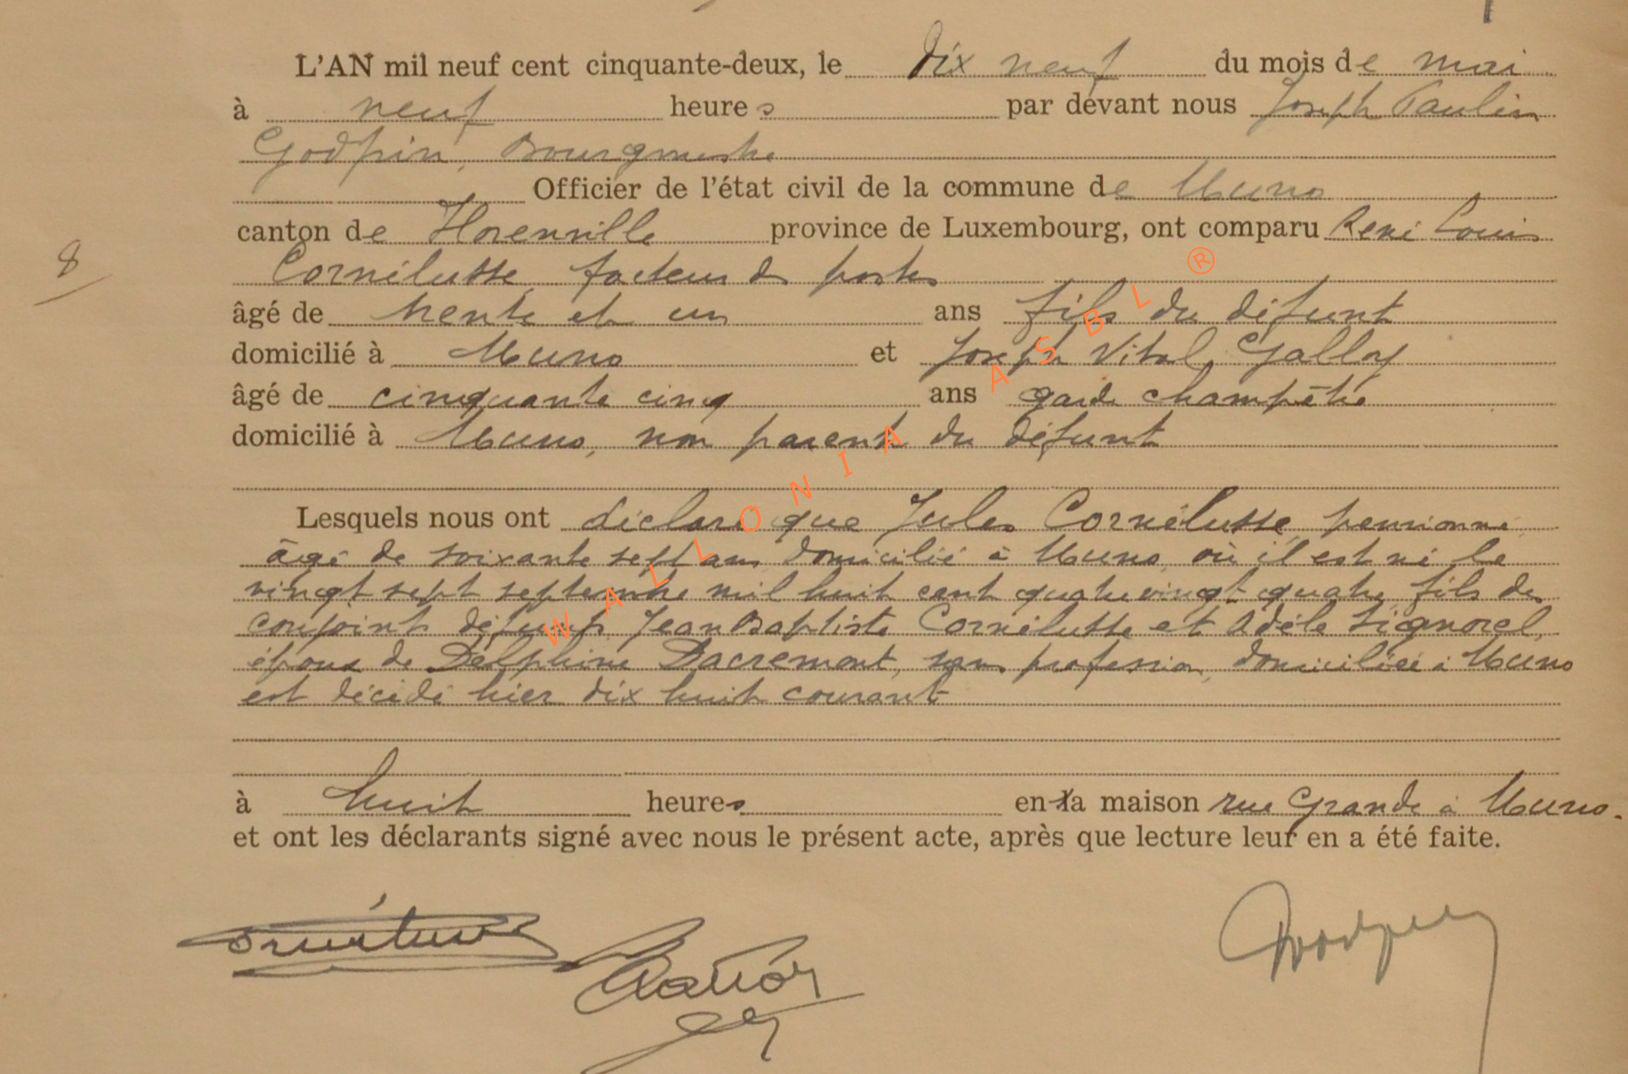 L'AN mil neuf cent cinquante-deux, le dix neuf du mois de mai
à neuf heures par devant nous Joseph Paulin
Godfrin, Bourgmestre
Officier de l'état civil de la commune de Muno
canton de Florenville province de Luxembourg, ont comparu René Louis
Cornélusse, facteur des postes
8
âgé de trente et un ans fils du défunt
domicilié à Muno et Joseph Vital Galloy
âgé de cinquante cinq ans garde champêtre
domicilié à Muno, non parent du défunt
Lesquels nous ont déclaré que Jules Cornélusse, pensionné,
âgé de soixante sept ans domicilié à Muno, où il est né le
vingt sept septembre mil huit cent quatre vingt quatre, fils des
conjoints défunts Jean Baptiste Cornélusse et Adèle Signorel,
époux de Delphine Dacremont, sans profession, domiciliée à Muno
est décédé hier dix huit courant
à huit heures en la maison rue Grande à Muno.
et ont les déclarants signé avec nous le présent acte, après que lecture leur en a été faite.
WALLONIA ASBL ®